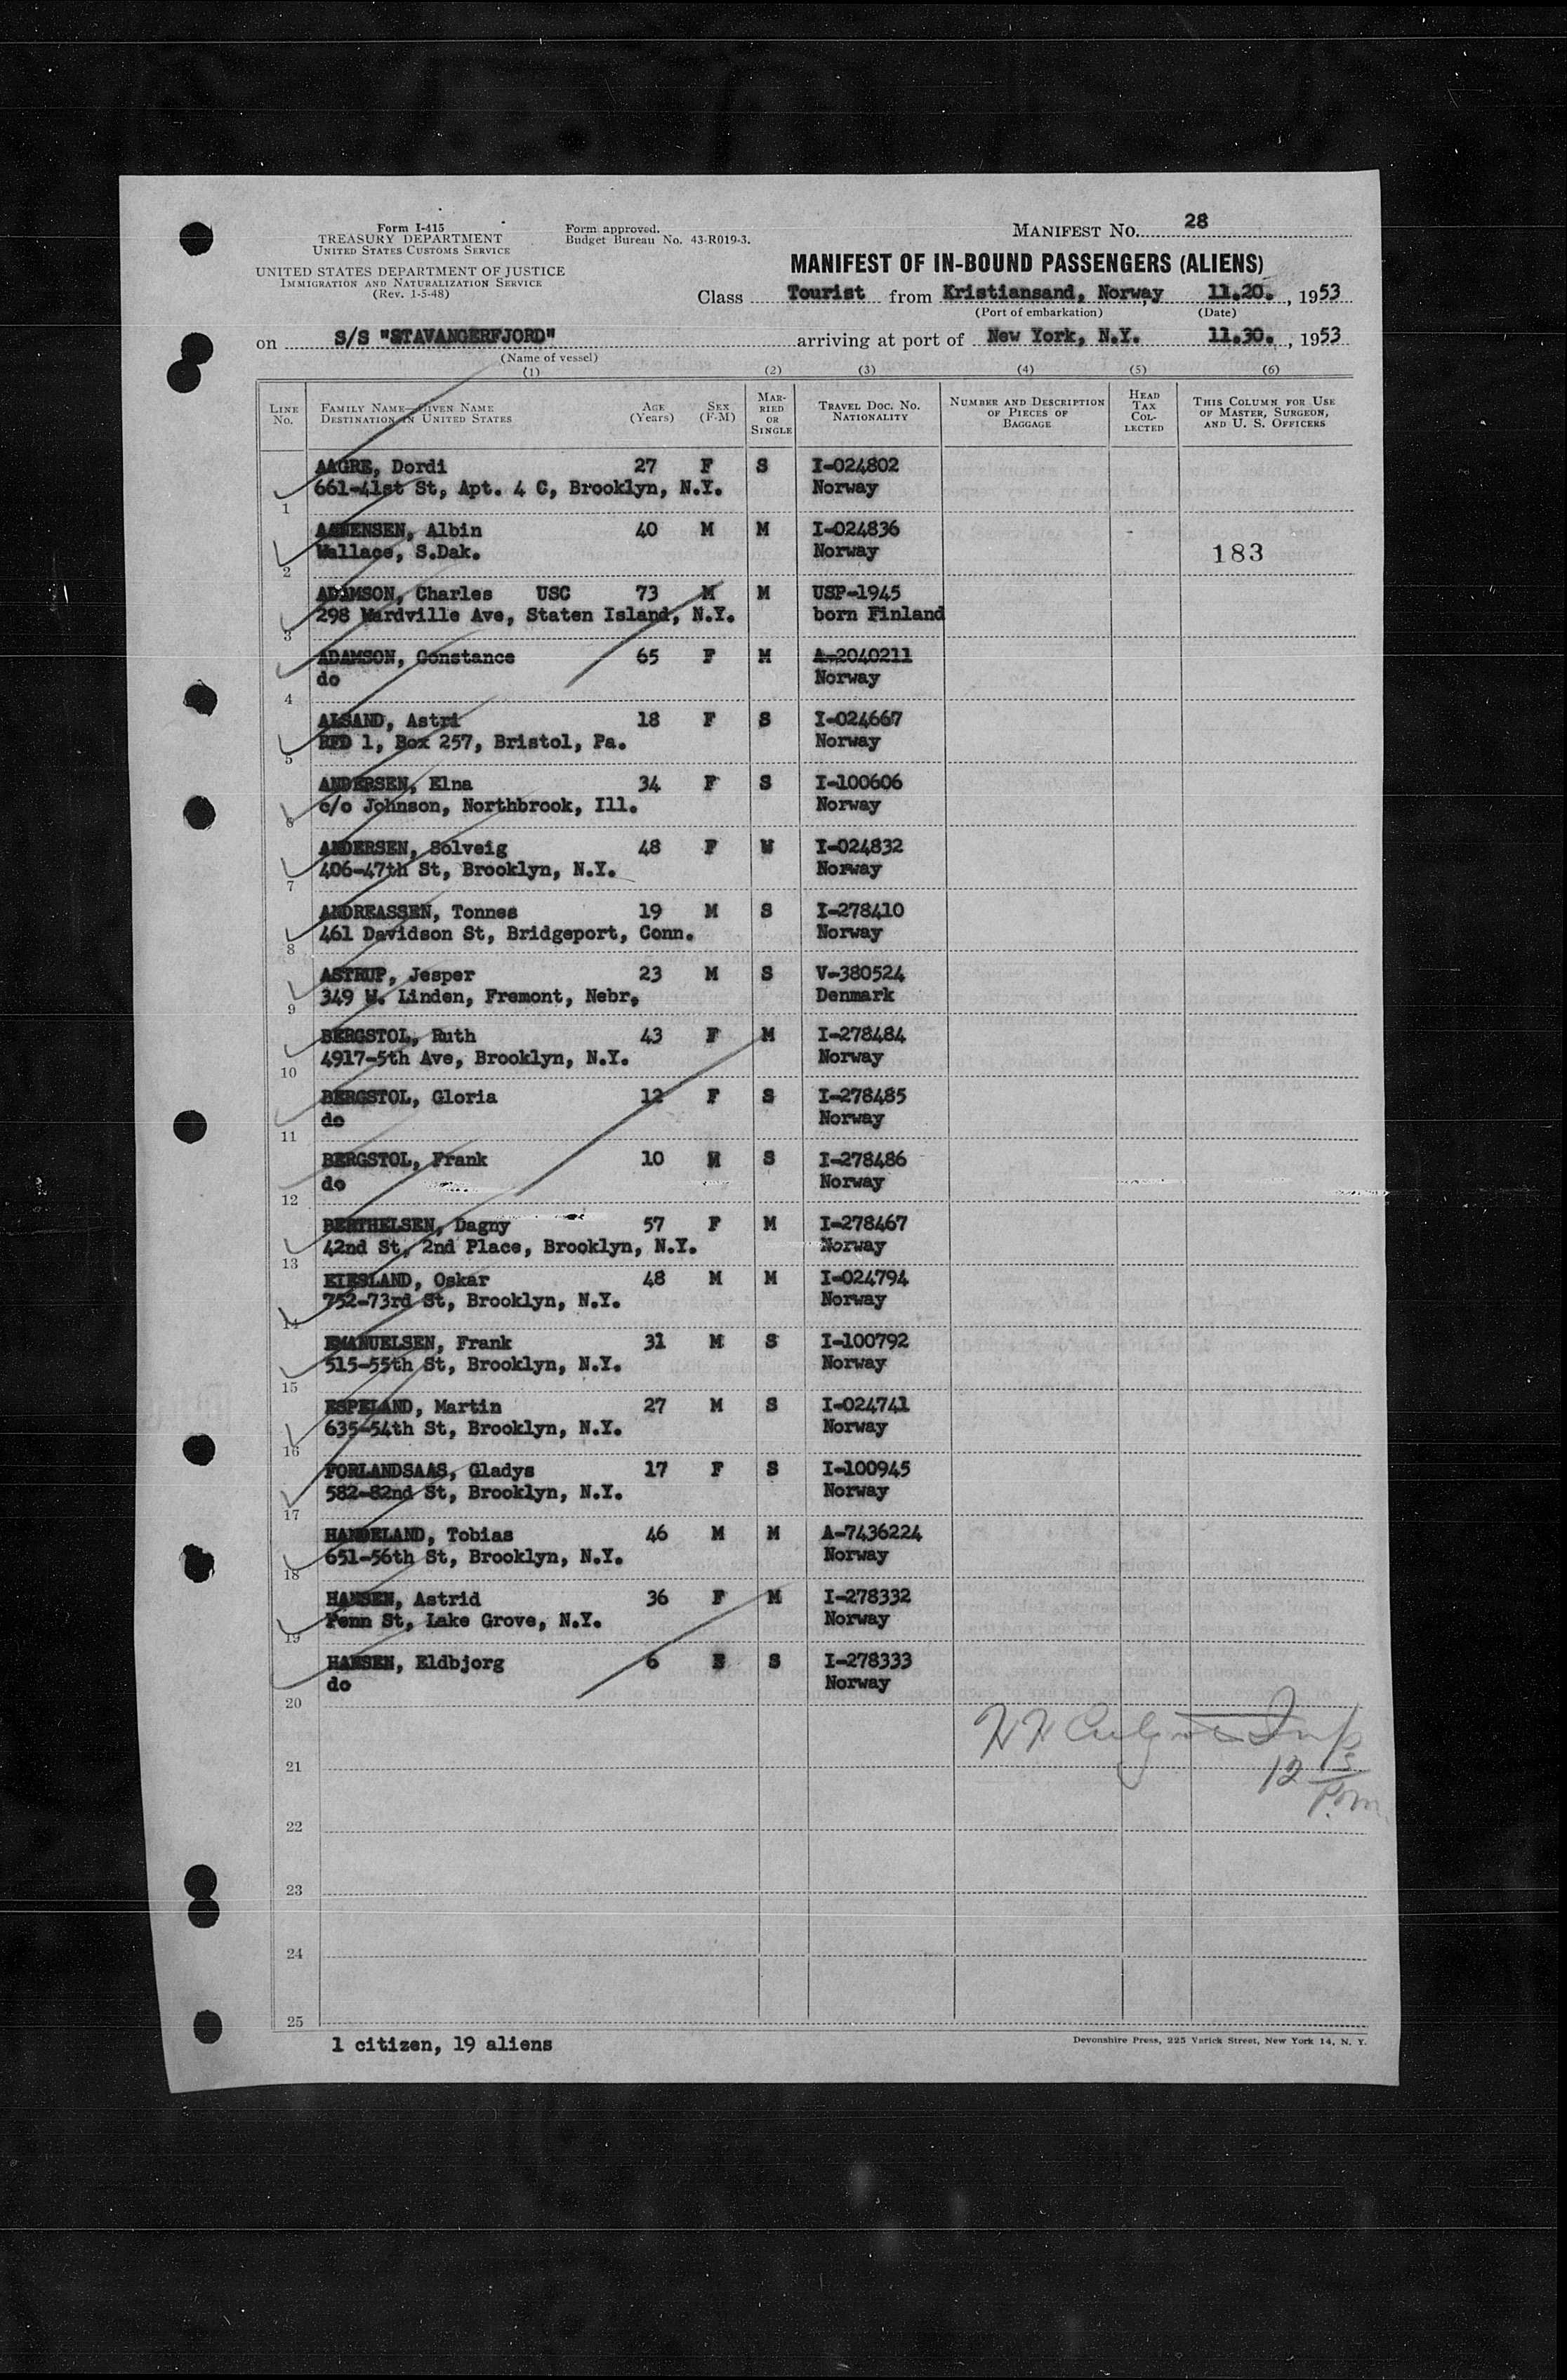 Form I-415
TREASURY DEPARTMENT
UNITED STATES CUSTOMS SERVICE
Form approved.
Budget Bureau No. 43-R019-3.
MANIFEST No. 28
UNITED STATES DEPARTMENT OF JUSTICE
IMMIGRATION AND NATURALIZATION SERVICE
(Rev. 1-5-48)
MANIFEST OF IN-BOUND PASSENGERS (ALIENS)
Class Tourist from Kristiansand, Norway 11.20., 1953
(Port of embarkation) (Date)
on S/S "STAVANGERFJORD" arriving at port of New York, N.Y. 11.30., 1953
(Name of vessel)
(1) (2) (3) (4) (5) (6)
LINE No. FAMILY NAME—GIVEN NAME DESTINATION IN UNITED STATES AGE (Years) SEX (F-M) MARRIED OR SINGLE TRAVEL DOC. No. NATIONALITY NUMBER AND DESCRIPTION OF PIECES OF BAGGAGE HEAD TAX COLLECTED THIS COLUMN FOR USE OF MASTER, SURGEON, AND U. S. OFFICERS
AAGRE, Dordi 27 F S I-024802
661-41st St, Apt. 4 C, Brooklyn, N.Y. Norway
1
AANENSEN, Albin 40 M M I-024836
Wallace, S.Dak. Norway 183
2
ADAMSON, Charles USC 73 M M USP-1945
298 Wardville Ave, Staten Island, N.Y. born Finland
3
ADAMSON, Constance 65 F M A-2040211
do Norway
4
ALSAND, Astri 18 F S I-024667
RFD 1, Box 257, Bristol, Pa. Norway
5
ANDERSEN, Elna 34 F S I-100606
c/o Johnson, Northbrook, Ill. Norway
6
ANDERSEN, Solveig 48 F W I-024832
406-47th St, Brooklyn, N.Y. Norway
7
ANDREASSEN, Tonnes 19 M S I-278410
461 Davidson St, Bridgeport, Conn. Norway
8
ASTRUP, Jesper 23 M S V-380524
349 W. Linden, Fremont, Nebr, Denmark
9
BERGSTOL, Ruth 43 F M I-278484
4917-5th Ave, Brooklyn, N.Y. Norway
10
BERGSTOL, Gloria 12 F S I-278485
do Norway
11
BERGSTOL, Frank 10 M S I-278486
do Norway
12
BERTHELSEN, Dagny 57 F M I-278467
42nd St, 2nd Place, Brooklyn, N.Y. Norway
13
EIESLAND, Oskar 48 M M I-024794
752-73rd St, Brooklyn, N.Y. Norway
14
EMANUELSEN, Frank 31 M S I-100792
515-55th St, Brooklyn, N.Y. Norway
15
ESPELAND, Martin 27 M S I-024741
635-54th St, Brooklyn, N.Y. Norway
16
FORLANDSAAS, Gladys 17 F S I-100945
582-82nd St, Brooklyn, N.Y. Norway
17
HANDELAND, Tobias 46 M M A-7436224
651-56th St, Brooklyn, N.Y. Norway
18
HANSEN, Astrid 36 F M I-278332
Penn St, Lake Grove, N.Y. Norway
19
HANSEN, Eldbjorg 6 S I-278333
do Norway
20
21
12
22
23
24
25
1 citizen, 19 aliens
Devonshire Press, 225 Varick Street, New York 14, N. Y.